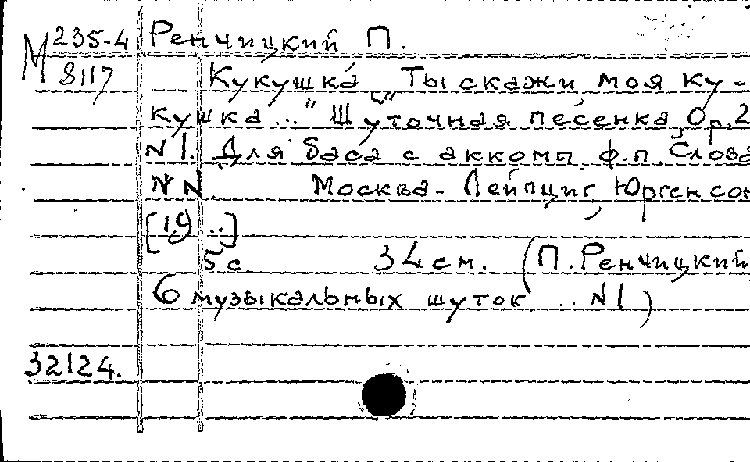 М 235-4 Ренчицкий П.
8117 Кукушка „Ты скажи моя ку-
кушка..." Шуточная песенка, Op.2
N 1. Для баса с аккомп. ф.п. Слова
N N. Москва - Лейпциг, Юргенсон
[19 ..]
5 с. 34 см. (П. Ренчицкий
6 музыкальных шуток .. N 1)
32124.